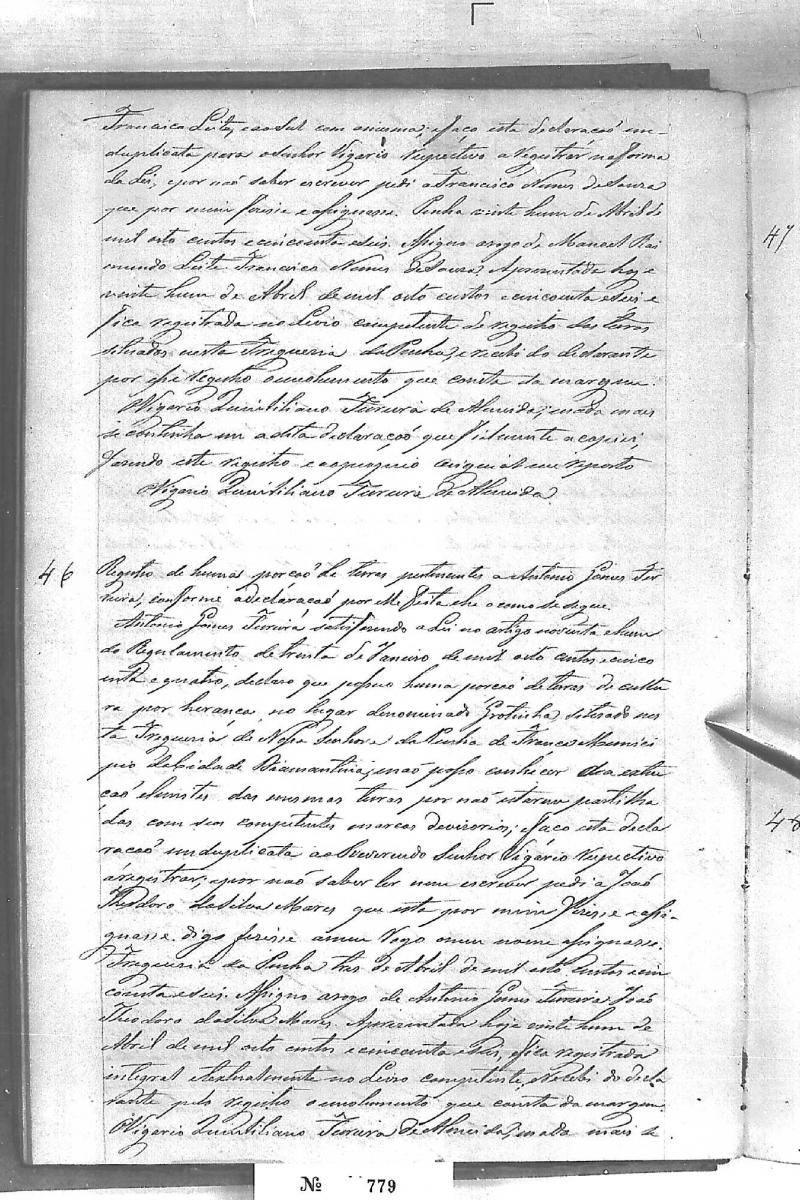 Francisco Leite, e ao Sul com omesma; e faço esta declaracaõ em
duplicata para o Senhor Vigario respectivo a registrar na forma
da Lei, e por naõ saber escrever pedi a Francisco Nunes de Souza
que por mim fizesse e assignasse. Penha vinte hum de Abril de
mil oito centos e cincoenta e seis. Assigno arogo de Manoel Rai
mundo Leite Francisco Nunes de Souza. Apresentada hoje
vinte hum de Abril de mil oito centos e cincoenta e seis e
fica registrada no Livro competente de registro das terras
situadas nesta Freguezia da Penha, e recebi do declarante
por esse registro o emolumento que consta da margem.
O Vigario Quintiliano Ferreira de Almeida; e nada mais
se continha em a dita declaraçaõ que fielmente a copiei
fazendo este registro e a original me reporto
O Vigario Quintiliano Ferreira de Almeida
46
Registro de humas porçaõ de terras pertencentes a Antonio Gomes Fer
reira, conforme a declaracaõ por elle feita e he o como se segue.
Antonio Gomes Ferreira satisfazendo a Lei no artigo noventa e hum
do Regulamento de trinta de Janeiro de mil oito centos e cinco
enta e quatro, declaro que possuo huma porçaõ de terras de cultu
ra por herança, no lugar denominado Grotinha, situado nes
ta Freguezia de Nossa Senhora da Penha de França Munici
pio da Cidade Diamantina; naõ posso conhecer a exten
caõ e limites das mesmas terras por naõ estarem partilha
das com seos competentes marcos devisorios; e faço esta decla
racaõ em duplicata ao Reverendo Senhor Vigario respectivo
a registrar; e por naõ saber ler nem escrever pedi a Joaõ
Theodoro da Silva Mares que esta por mim fizesse e assi-
gnasse. digo fizesse a meu rogo e meu nome assignasse.
Freguezia da Penha tres de Abril de mil oito centos e cin
coenta e seis. Assigno arogo de Antonio Gomes Ferreira Joaõ
Theodoro da Silva Mares. Apresentada hoje vinte hum de
Abril de mil oito centos e cincoenta e seis, e fica registrada
integral e textualmente no Livro competente, e Recebi do decla
rante pelo registro o emolumento que consta da margem.
O Vigario Quintiliano Ferreira de Almeida; e nada mais se
47
48
№ 779